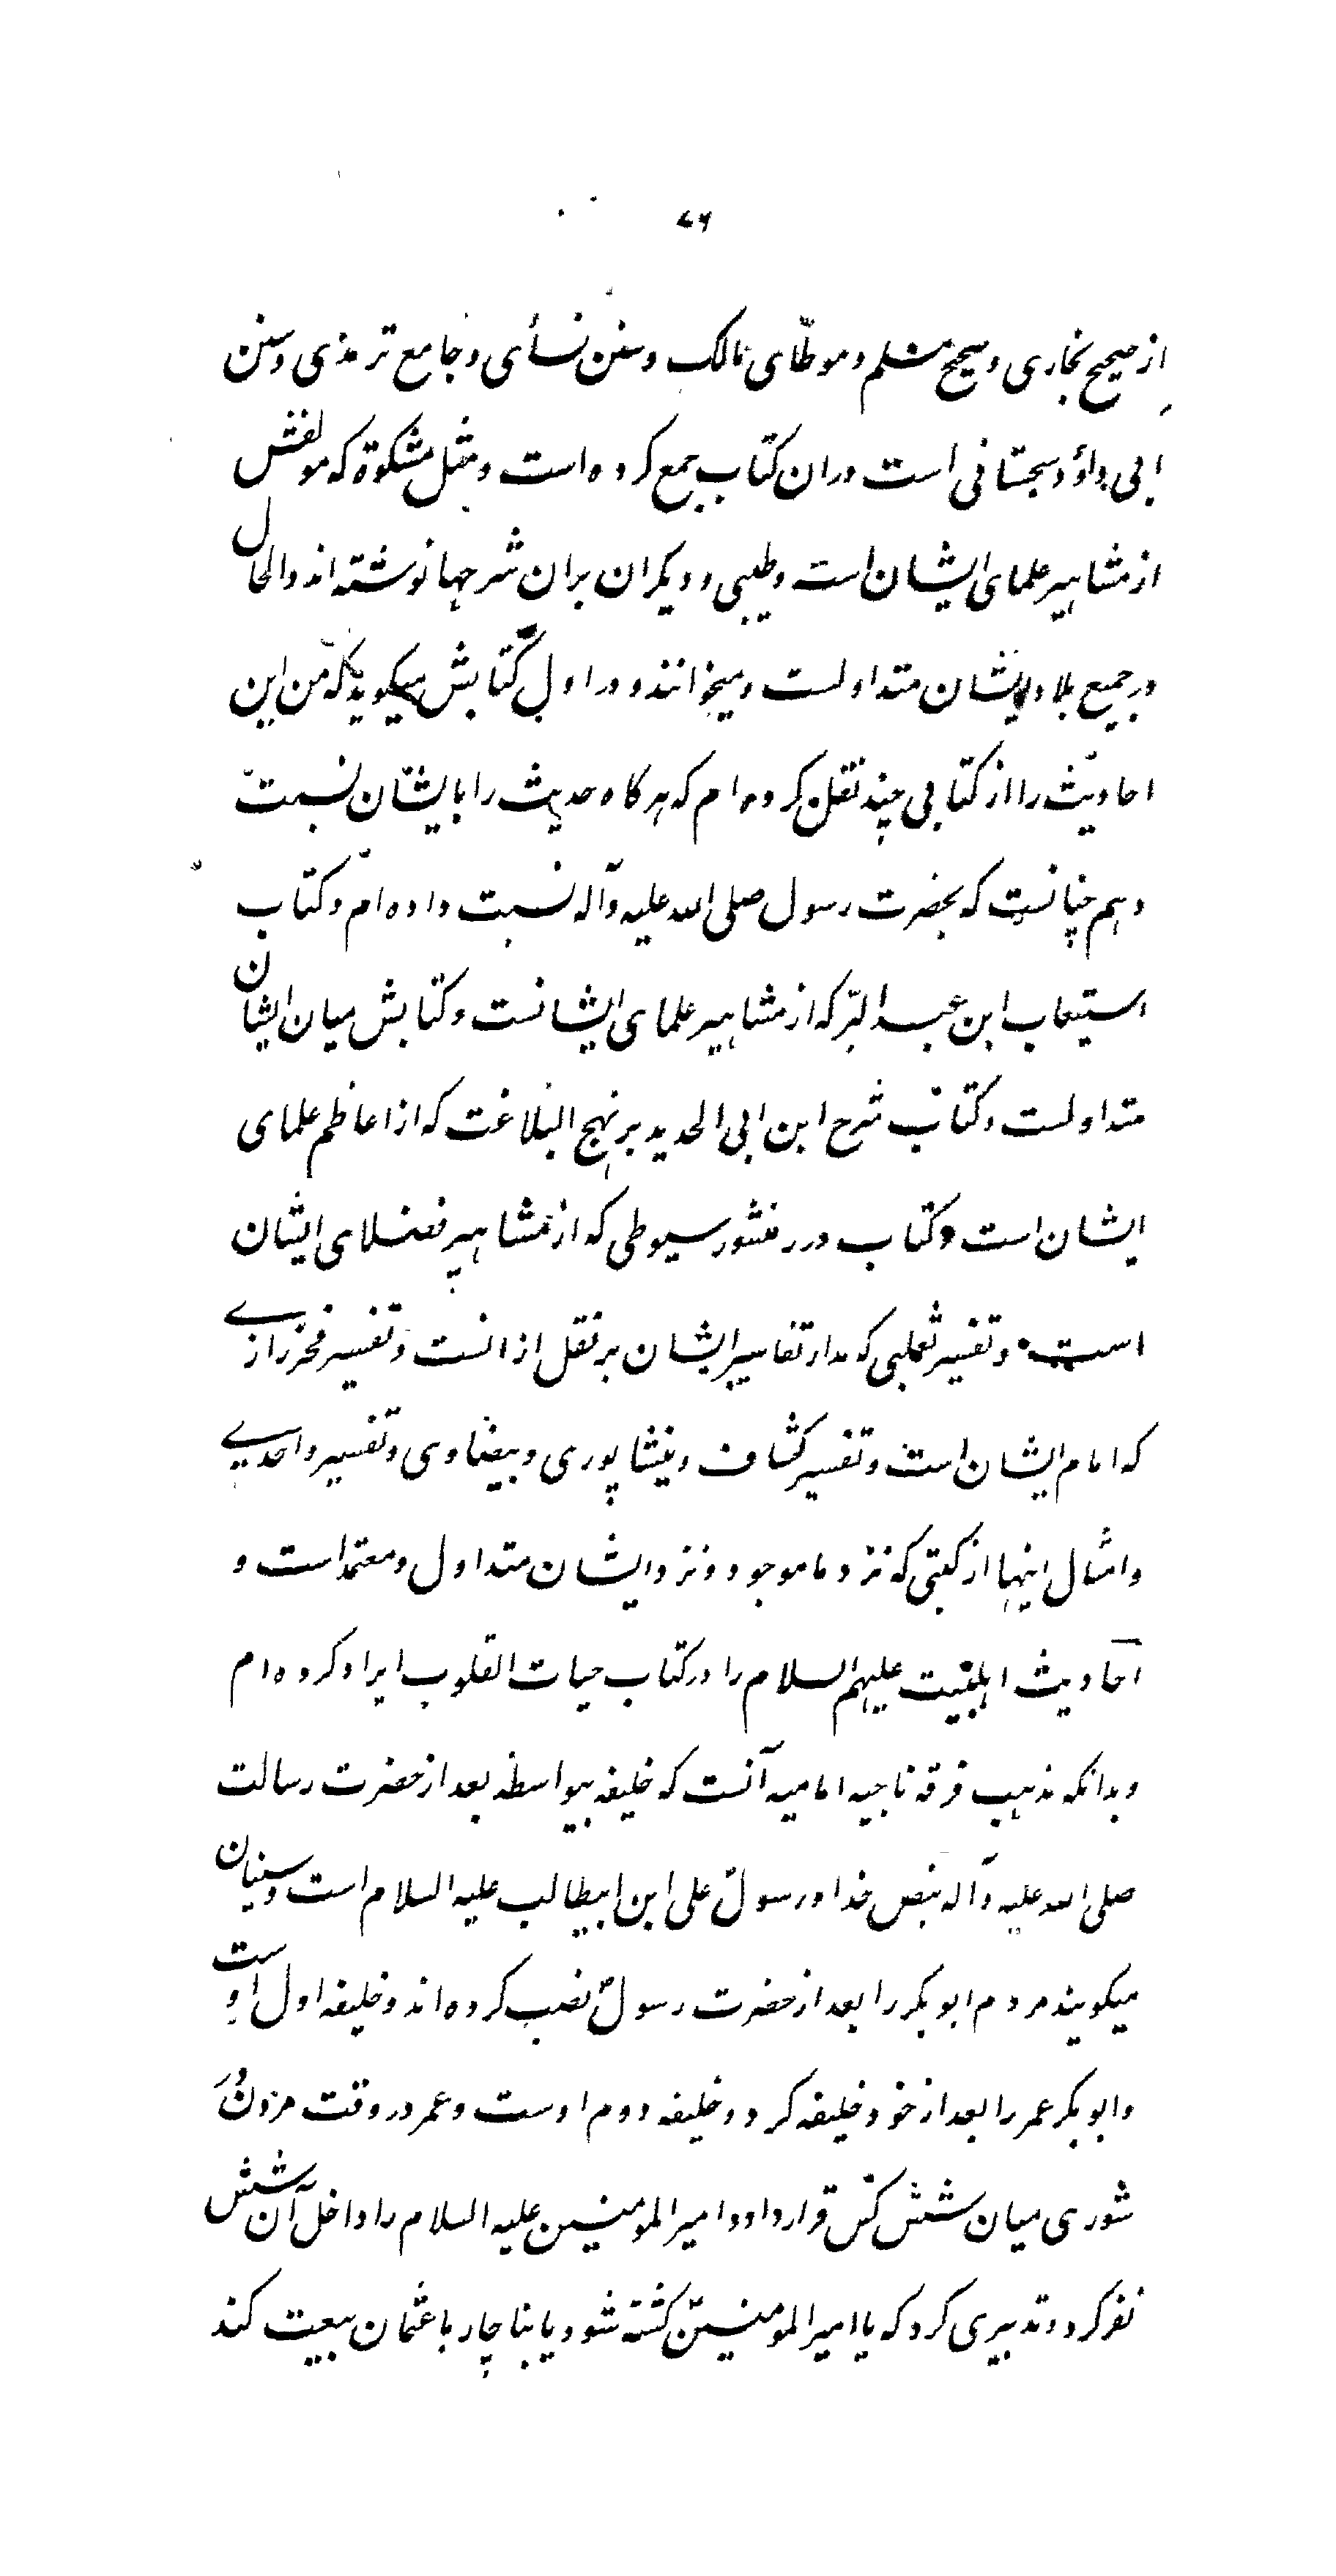 ۷۶
از صحیح بخاری و صحیح مسلم و موطّای مالک و سنن نسأی و جامع ترمذی و سنن
ابی داؤد سجستانی است دران کتاب جمع کرده است و مثل مشکوة که مولفش
از مشاهیر علمای ایشان است و طیبی و دیکران بران شرحها نوشته اند و الحال
در جمیع بلاد ایشان متداولست و میخوانند و در اول کتابش میکوید که من این
احادیث را از کتابی چند نقل کرده ام که هرکاه حدیث را بایشان نسبت
دهم چنانست که بحضرت رسول صلی الله علیه و آله نسبت داده ام و کتاب
استیعاب ابن عبد البرّ که از مشاهیر علمای ایشانست و کتابش میان ایشان
متداولست و کتاب شرح ابن ابی الحدید بر نهج البلاغت که از اعاظم علمای
ایشان است و کتاب درر منثور سیوطی که از مشاهیر فضلای ایشان
است و تفسیر ثعلبی که مدار تفاسیر ایشان بر نقل ازانست و تفسیر فخر رازے
که امام ایشان است و تفسیر کشاف و نیشاپوری و بیضاوی و تفسیر واحدے
و امثال اینها از کتبی که نزد ما موجود و نزد ایشان متداول و معتمد است و
احادیث اهلبیت علیهم السلام را در کتاب حیات القلوب ایراد کرده ام
و بدانکه مذهب فرقه ناجیه امامیه آنست که خلیفه بیواسطه بعد از حضرت رسالت
صلی الله علیه و آله بنص خدا و رسولؐ علی ابن ابیطالب علیه السلام است و سنیان
میکویند مردم ابو بکر را بعد از حضرت رسولؐ نصب کرده اند و خلیفه اول اوست
و ابو بکر عمر را بعد از خود خلیفه کرد و خلیفه دوم اوست و عمر در وقت مردن در
شوری میان شش کس قرار داد و امیر المومنین علیه السلام را داخل آن شش
نفر کرد و تدبیری کرد که یا امیر المومنینؑ کشته شود یا بناچار با عثمان بیعت کند